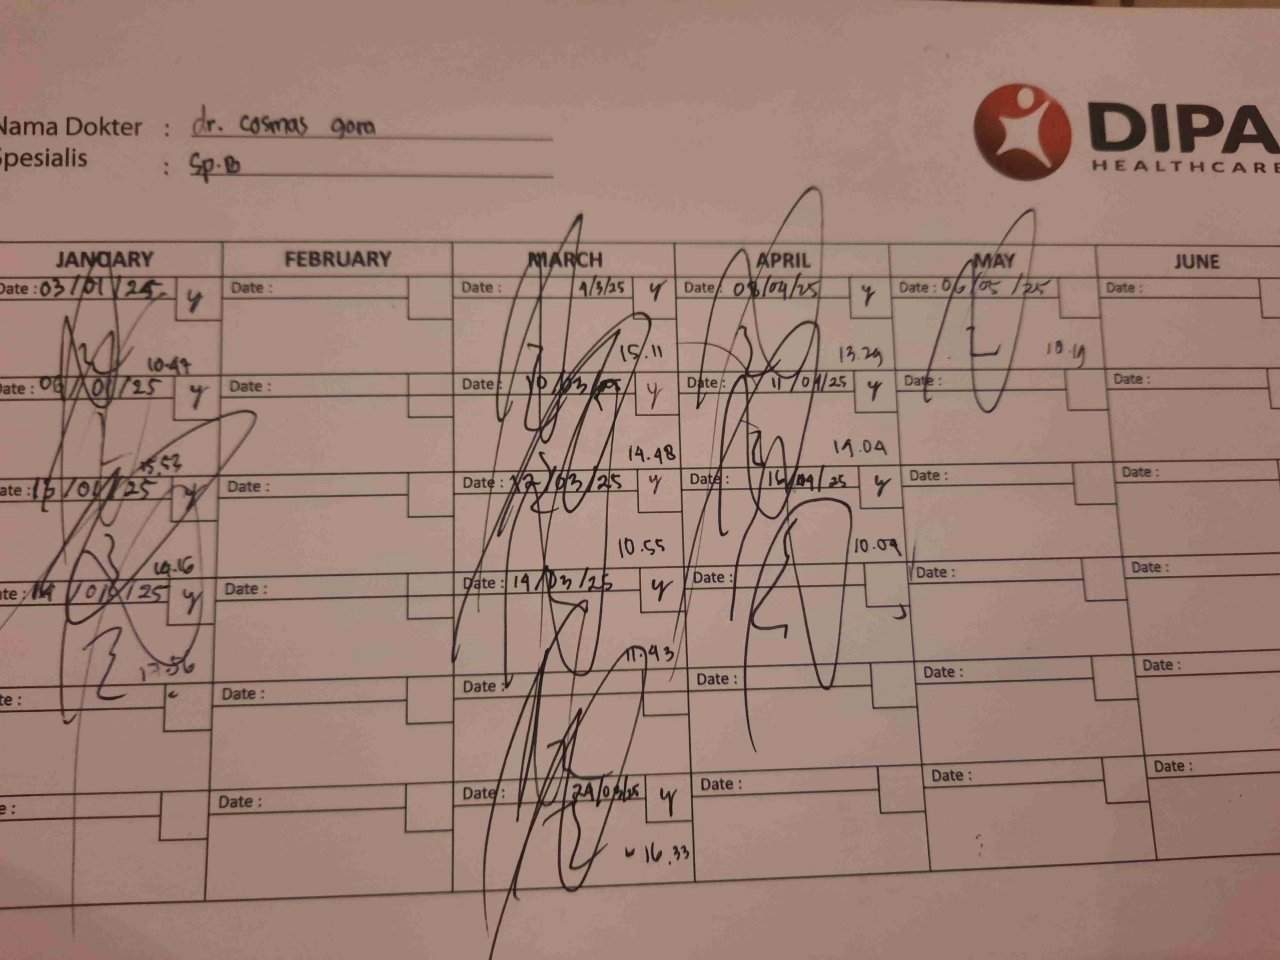 Nama Dokter : dr. cosmas gora
Spesialis : Sp.B
DIPA
HEALTHCARE
JANUARY FEBRUARY MARCH APRIL MAY JUNE
Date : 03/01/25 y Date : Date : 4/3/25 y Date : 08/04/25 y Date : 06/05/25 Date :
10.47 15.11 13.29 10.19
Date : 06/01/25 y Date : Date : 10/03/25 y Date : 11/04/25 y Date : Date :
15.52 14.48 14.04
Date : 13/01/25 y Date : Date : 12/03/25 y Date : 16/04/25 y Date : Date :
14.16 10.55 10.09
Date : 14/01/25 y Date : Date : 14/03/25 y Date : Date : Date :
17.56 11.43
Date : Date : Date : Date : Date : Date :
Date : Date : Date : 24/03/25 y Date : Date : Date :
16.33